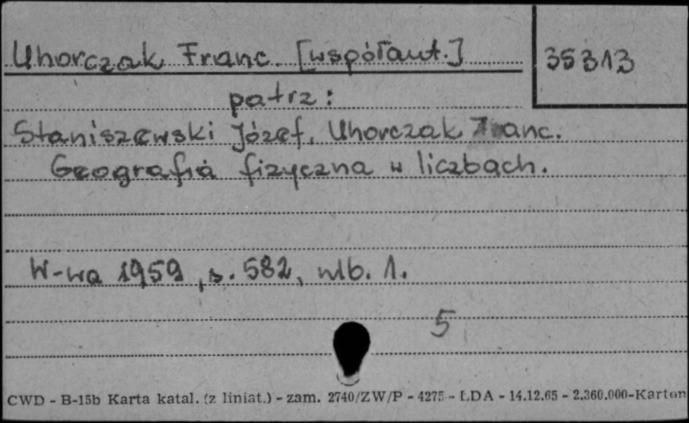 Uhorczak Franc. [współaut.]
35313
patrz:
Staniszewski Józef, Uhorczak Franc.
Geografia fizyczna w liczbach.
W-wa 1959, s. 582, nlb. 1.
5
CWD - B-15b Karta katal. (z liniat.) - zam. 2740/ZW/P - 4275 - ŁDA - 14.12.65 - 2.360.000-Karton